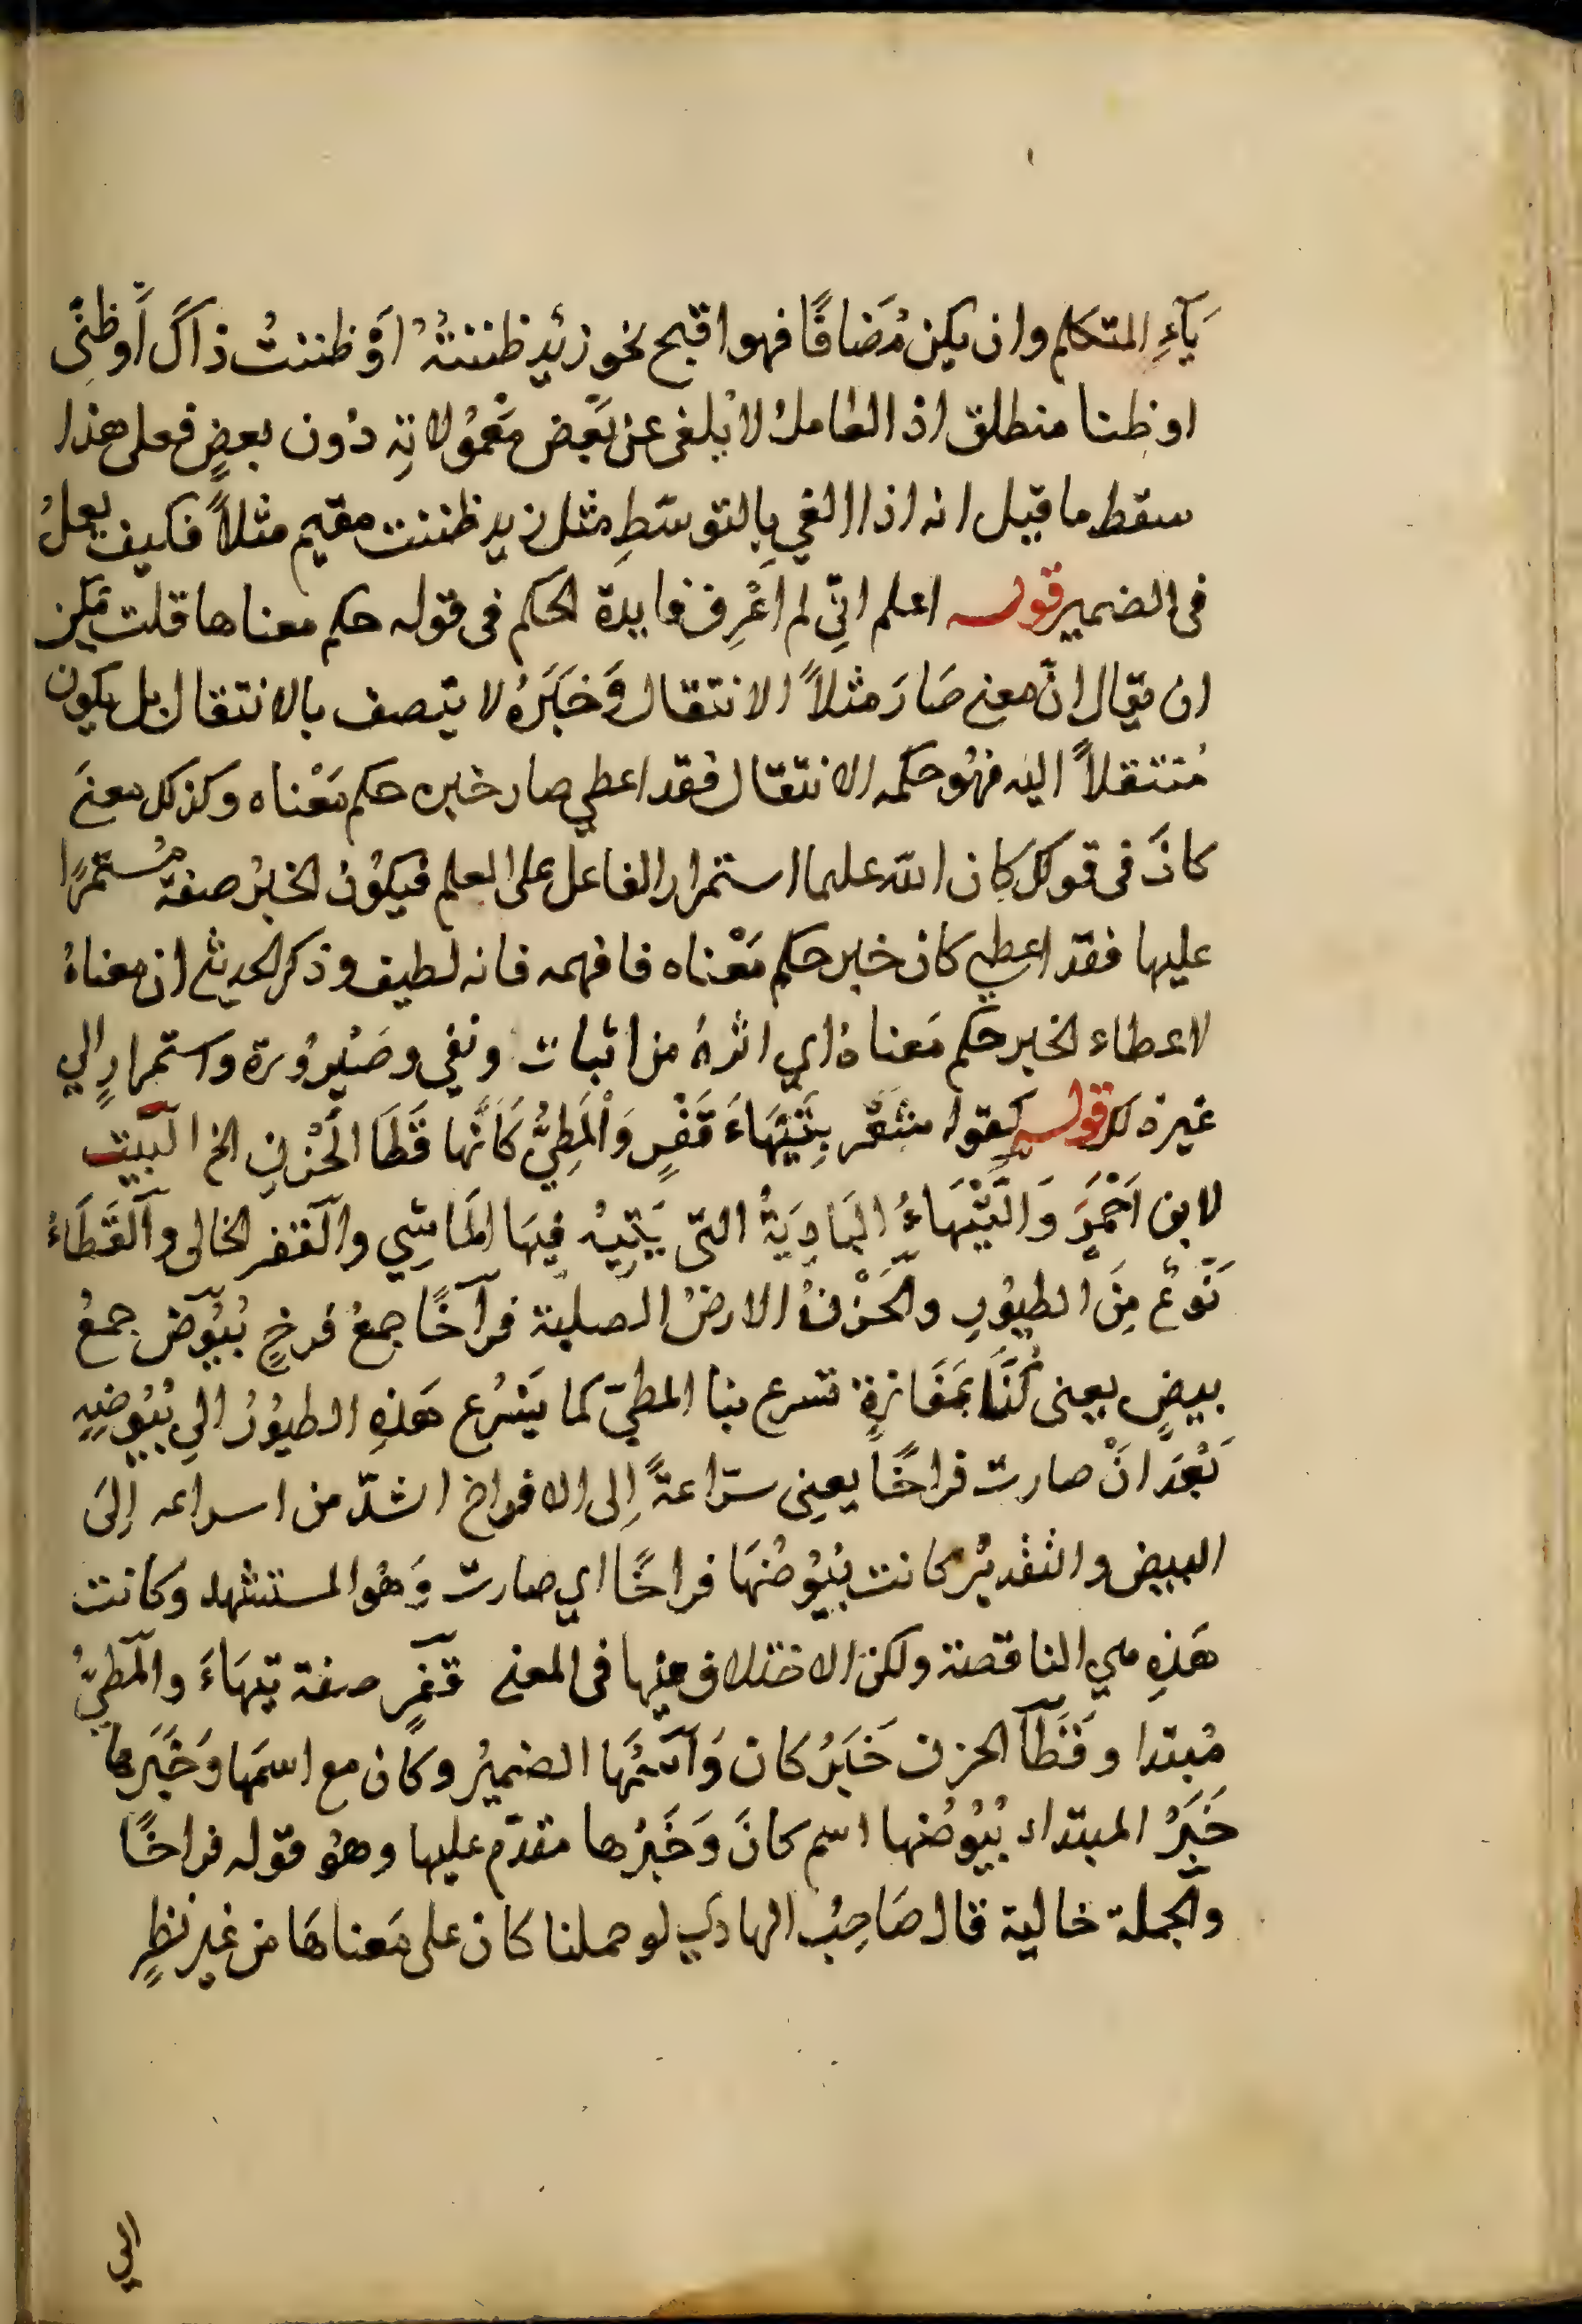 يَآءِ المتكلم وان يكن مُضَافًا فهو اقبح نحو زيدٍ ظننتهُ اَوْ ظننتُ ذاكَ اَو ظنّي
او ظنا منطلق اذ العاملُ لا يُلغى عن بَعْض مَعْمُولاتِه دُون بعضٍ فعلى هذا
سقط ما قيل انه اذا الغي بالتوسّطِ مثل زيد ظننت مقيم مثلاً فكيف يعملُ
فى الضمير قوله اعلم انّي لم اَعْرِف فايدة الحكم فى قوله حكم معناها قلت يمكن
ان يقال انّ معنى صَارَ مثلاً الانتقال وَخَبَرَهُ لا يتصف بالانتقال بل يكون
مُنتقلاً اليه فهُو حكمه الانتقال فقد اعطي صار خبره حكم مَعْناه وكذلك معنَى
كانَ فى قولك كان الله عليما استمرار الفاعل على العلم فيكُونُ الخبرُ صفة مُستمرًا
عليها فقد اعطي كان خبر حكم مَعْناه فافهمه فانه لطيف وذكر الحديثي ان معناهُ
لاعطاء الخبر حكم مَعناهُ اي اثرهُ من اثبات ونفي وصَيْرُورة واستمرارٍ الي
غير ذلك قوله كقوله شعر بِتَيْهَاءَ قَفْرٍ وَالْمَطِيُّ كَاَنَّها قَطَا الْحَزْنِ الخ البَيْت
لابن اَحْمَرَ وَالتَّيْهَاءُ البَادِيَةُ التى يَتِيْهُ فيهَا المَاشِي والقفر الخالى والقَطَاءُ
نَوْعٌ مِنَ الطيُورِ والْحَزْنُ الارضُ الصلبة فراخًا جمعُ فرخٍ بُيُوض جمعُ
بيضٍ يعنى كُنَّا بمَفَازةٍ تسرع بنا المطيّ كما يَسْرُع هَذِهِ الطيُورُ الي بُيُوضِهِ
بَعْدَ انْ صارت فراخًا يعنِى سرّاعةً إلى الافراخ اشدّ من اسراعه إلىَ
البيض والتقديرُ كانت بُيُوضُهَا فراخًا اي صارت وَهُو المستشهد وكانت
هَذِهِ هي الناقصة ولكن الاختلاف فيها فى المعنى قَفْرٍ صفة تيهَاءَ والمَطيُّ
مُبتدا وقَطَا الحزن خَبَرُ كان وَاسْمُهَا الضميرُ وكان مع اسمَها وَخَبَرِها
خَبَرُ المبتداء بُيُوضُها اسم كانَ وَخَبَرُها مقدّم عليها وهُو قوله فراخًا
والْجملة خالية قال صَاحِبُ الهادي لو حملنا كان على مَعناهَا من غير نظرٍ
الي